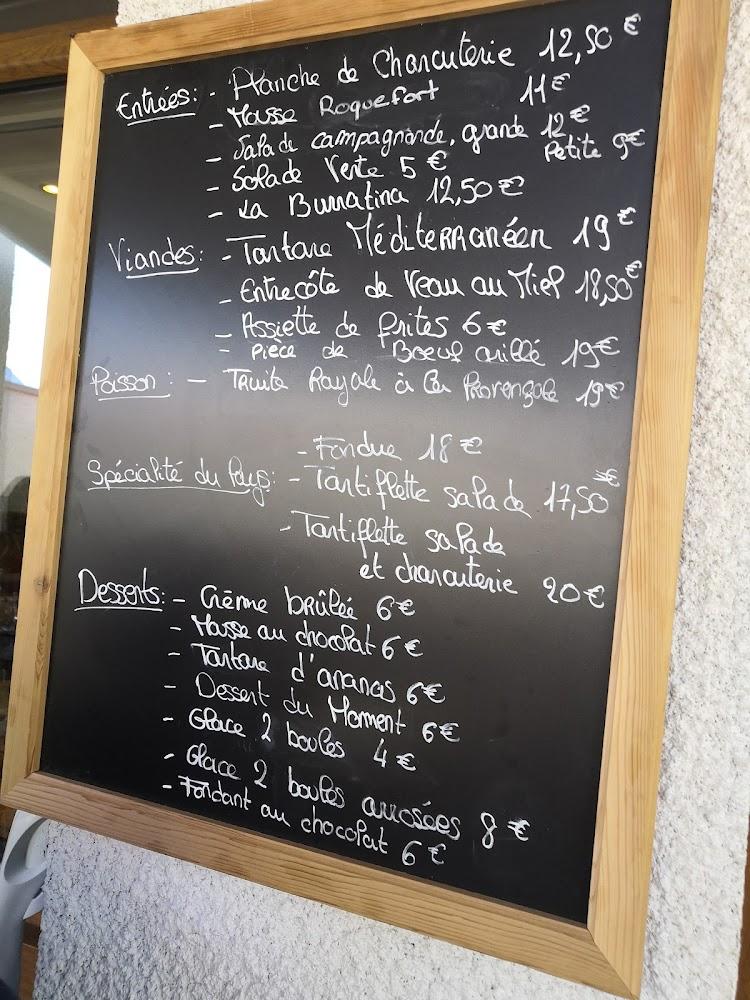 Entrées: - Planche de Charcuterie 12,50 €
- Mousse Roquefort 11 €
- Salade campagnarde, grande 12 €
Petite 9€
- Salade Verte 5 €
- La Burratina 12,50 €
Viandes: - Tartare Méditerranéen 19 €
- Entrecôte de Veau au Miel 18,50 €
- Assiette de frites 6 €
- Pièce de Boeuf grillé 19€
Poisson: - Truite Royale à la Provençale 19€
- Fondue 18 €
Spécialité du Pays: - Tartiflette salade 17,50 €
- Tartiflette salade
et charcuterie 20 €
Desserts: - Crème brûlée 6 €
- Mousse au chocolat 6 €
- Tartare d'ananas 6 €
- Dessert du Moment 6 €
- Glace 2 boules 4 €
- Glace 2 boules arrosées 8 €
- Fondant au chocolat 6 €